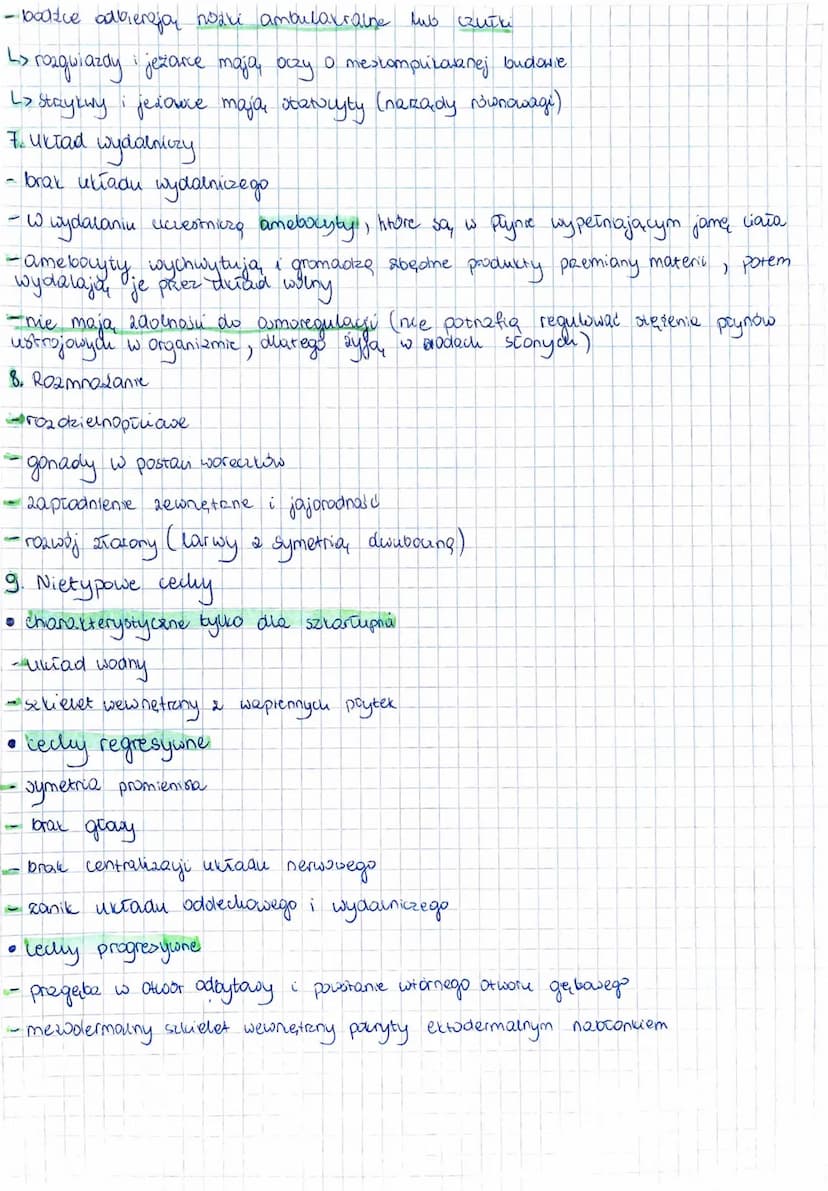 - bodźce odbierają nóżki ambulakralne lub czułki
↳ rozgwiazdy i jeżowce mają oczy o nieskomplikowanej budowie
↳ strzykwy i jeżowce mają statocyty (narządy równowagi)
7. Układ wydalniczy
- brak układu wydalniczego
- w wydalaniu uczestniczą amebocyty, które są w płynie wypełniającym jamę ciała
- amebocyty wychwytują i gromadzą zbędne produkty przemiany materii, potem
wydalają je przez układ wodny
- nie mają zdolności do osmoregulacji (nie potrafią regulować stężenia płynów
ustrojowych w organizmie, dlatego żyją w wodach słonych)
8. Rozmnażanie
- rozdzielnopłciowe
- gonady w postaci woreczków
- zapłodnienie zewnętrzne i jajorodność
- rozwój złożony (larwy z symetrią dwuboczną)
9. Nietypowe cechy
• charakterystyczne tylko dla szkarłupni
- układ wodny
- szkielet wewnętrzny z wapiennych płytek
• cechy regresywne
- symetria promienista
- brak głowy
- brak centralizacji układu nerwowego
- zanik układu oddechowego i wydalniczego
• cechy progresywne
- pragęba w otwór odbytowy i powstanie wtórnego otworu gębowego
- mezodermalny szkielet wewnętrzny pokryty ektodermalnym nabłonkiem